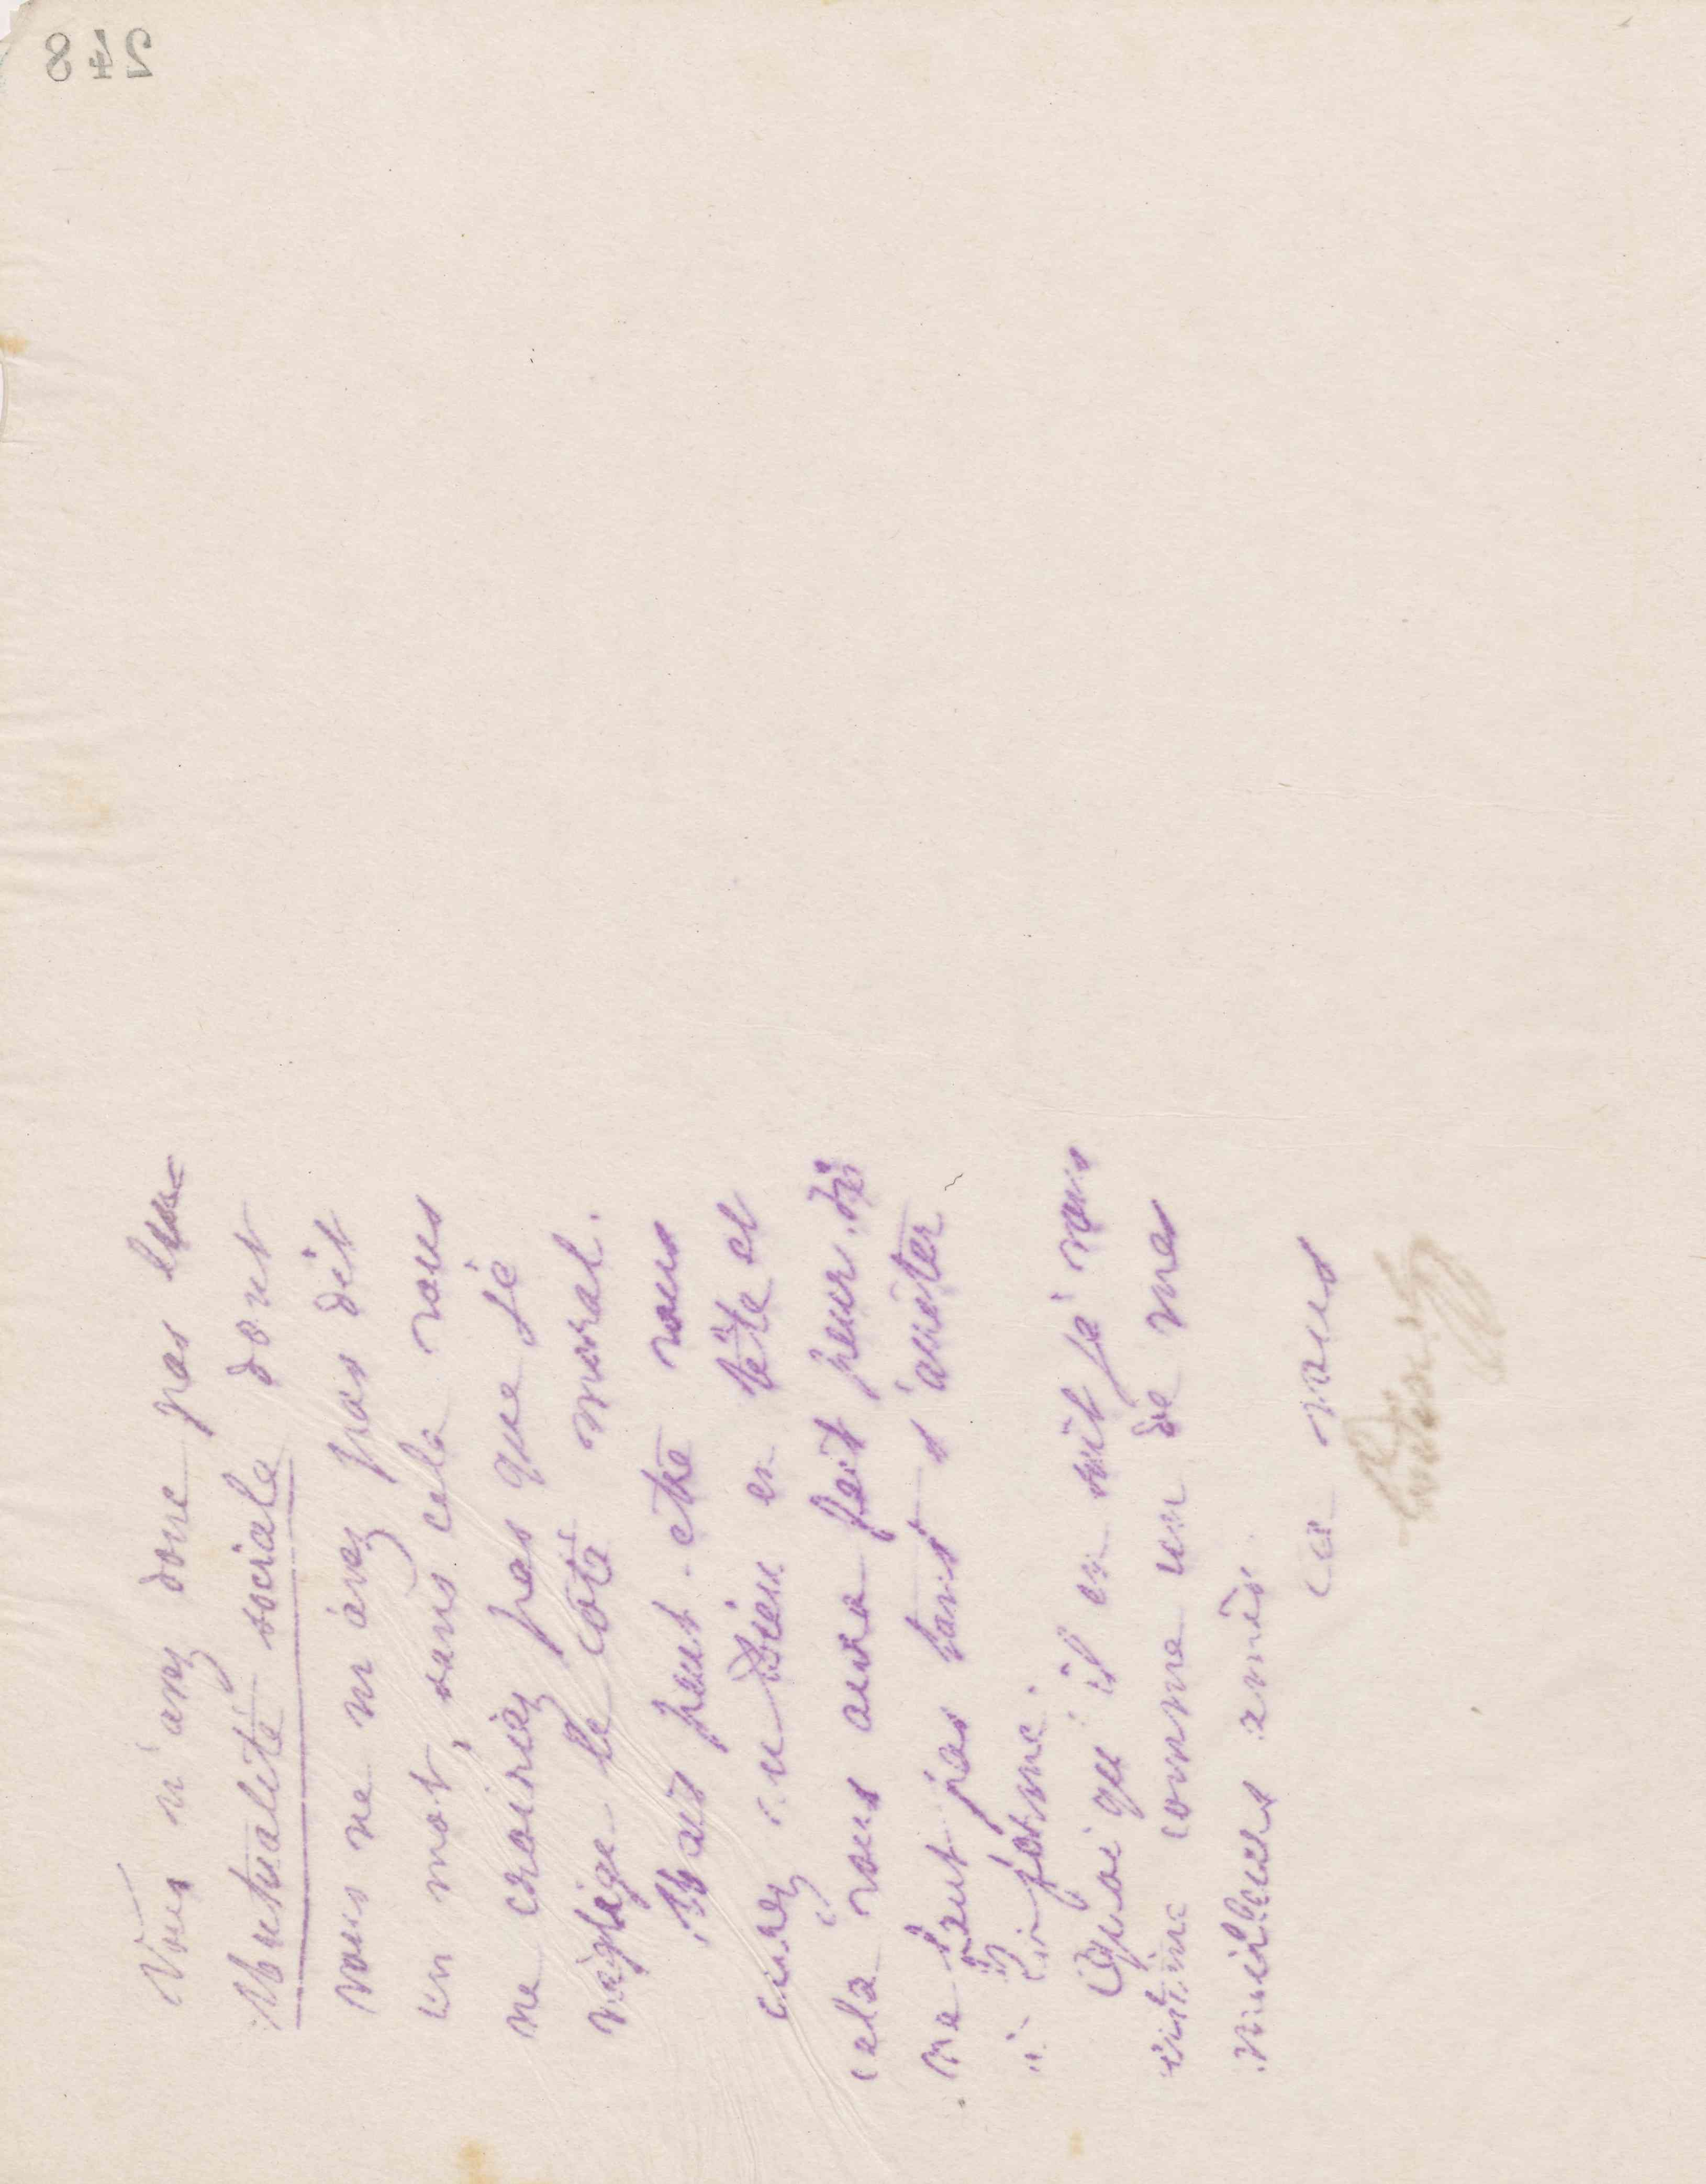 248
Vous n'avez donc pas lu
Mutualité sociale dont
vous ne m'avez pas dit
un mot, sans cela vous
ne croiriez pas que je
néglige le côté moral.
Mais peut-être vous
aurez vu Dieu en tête et
cela vous aura fait peur. Il
ne faut pas tant s'arrêter
à la forme.
Quoi qu'il en soit je vous
estime comme un de mes
meilleurs amis.
à vous
Godin